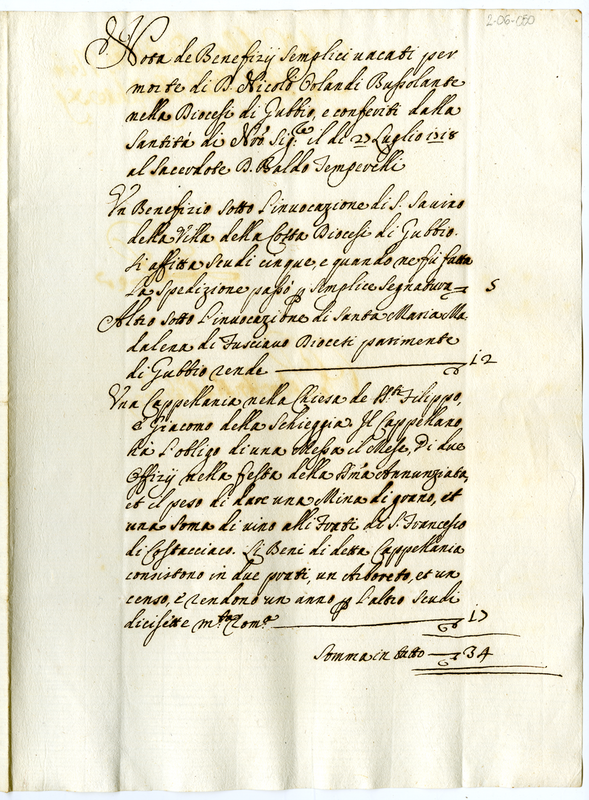 2-06-050
Nota de Benefizij semplici vacati per
morte di D. Nicolò Orlandi Bussolante
nella Diocesi di Gubbio, e conferiti dalla
Santità di Nro Sigre il dì 27 Luglio 1718
al Sacerdote D. Baldo Temperelli
Un Benefizio sotto l'invocazione di S. Savino
della Villa della Costa Diocesi di Gubbio.
Si affitta scudi cinque, e quando ne fù fatta
la spedizione passò p semplice segnatura 5
Altro sotto l'invocazione di Santa Maria Ma
dalena di Fusciano Diocesi parimente
di Gubbio rende 12
Una Cappellania nella Chiesa de SSti Filippo,
e Giacomo della Schieggia. Il Cappellano
hà l'obligo di una Messa il Mese, di due
Offizij nella festa della SSma Annunziata,
et il peso di dare una Mina di grano, et
una soma di vino alli Frati di S. Francesco
di Costacciaco. Li Beni di detta Cappellania
consistono in due prati, un Arboreto, et un
censo, e rendono un anno p l'altro scudi
dicisette mta Romª 17
Somma in tutto 34